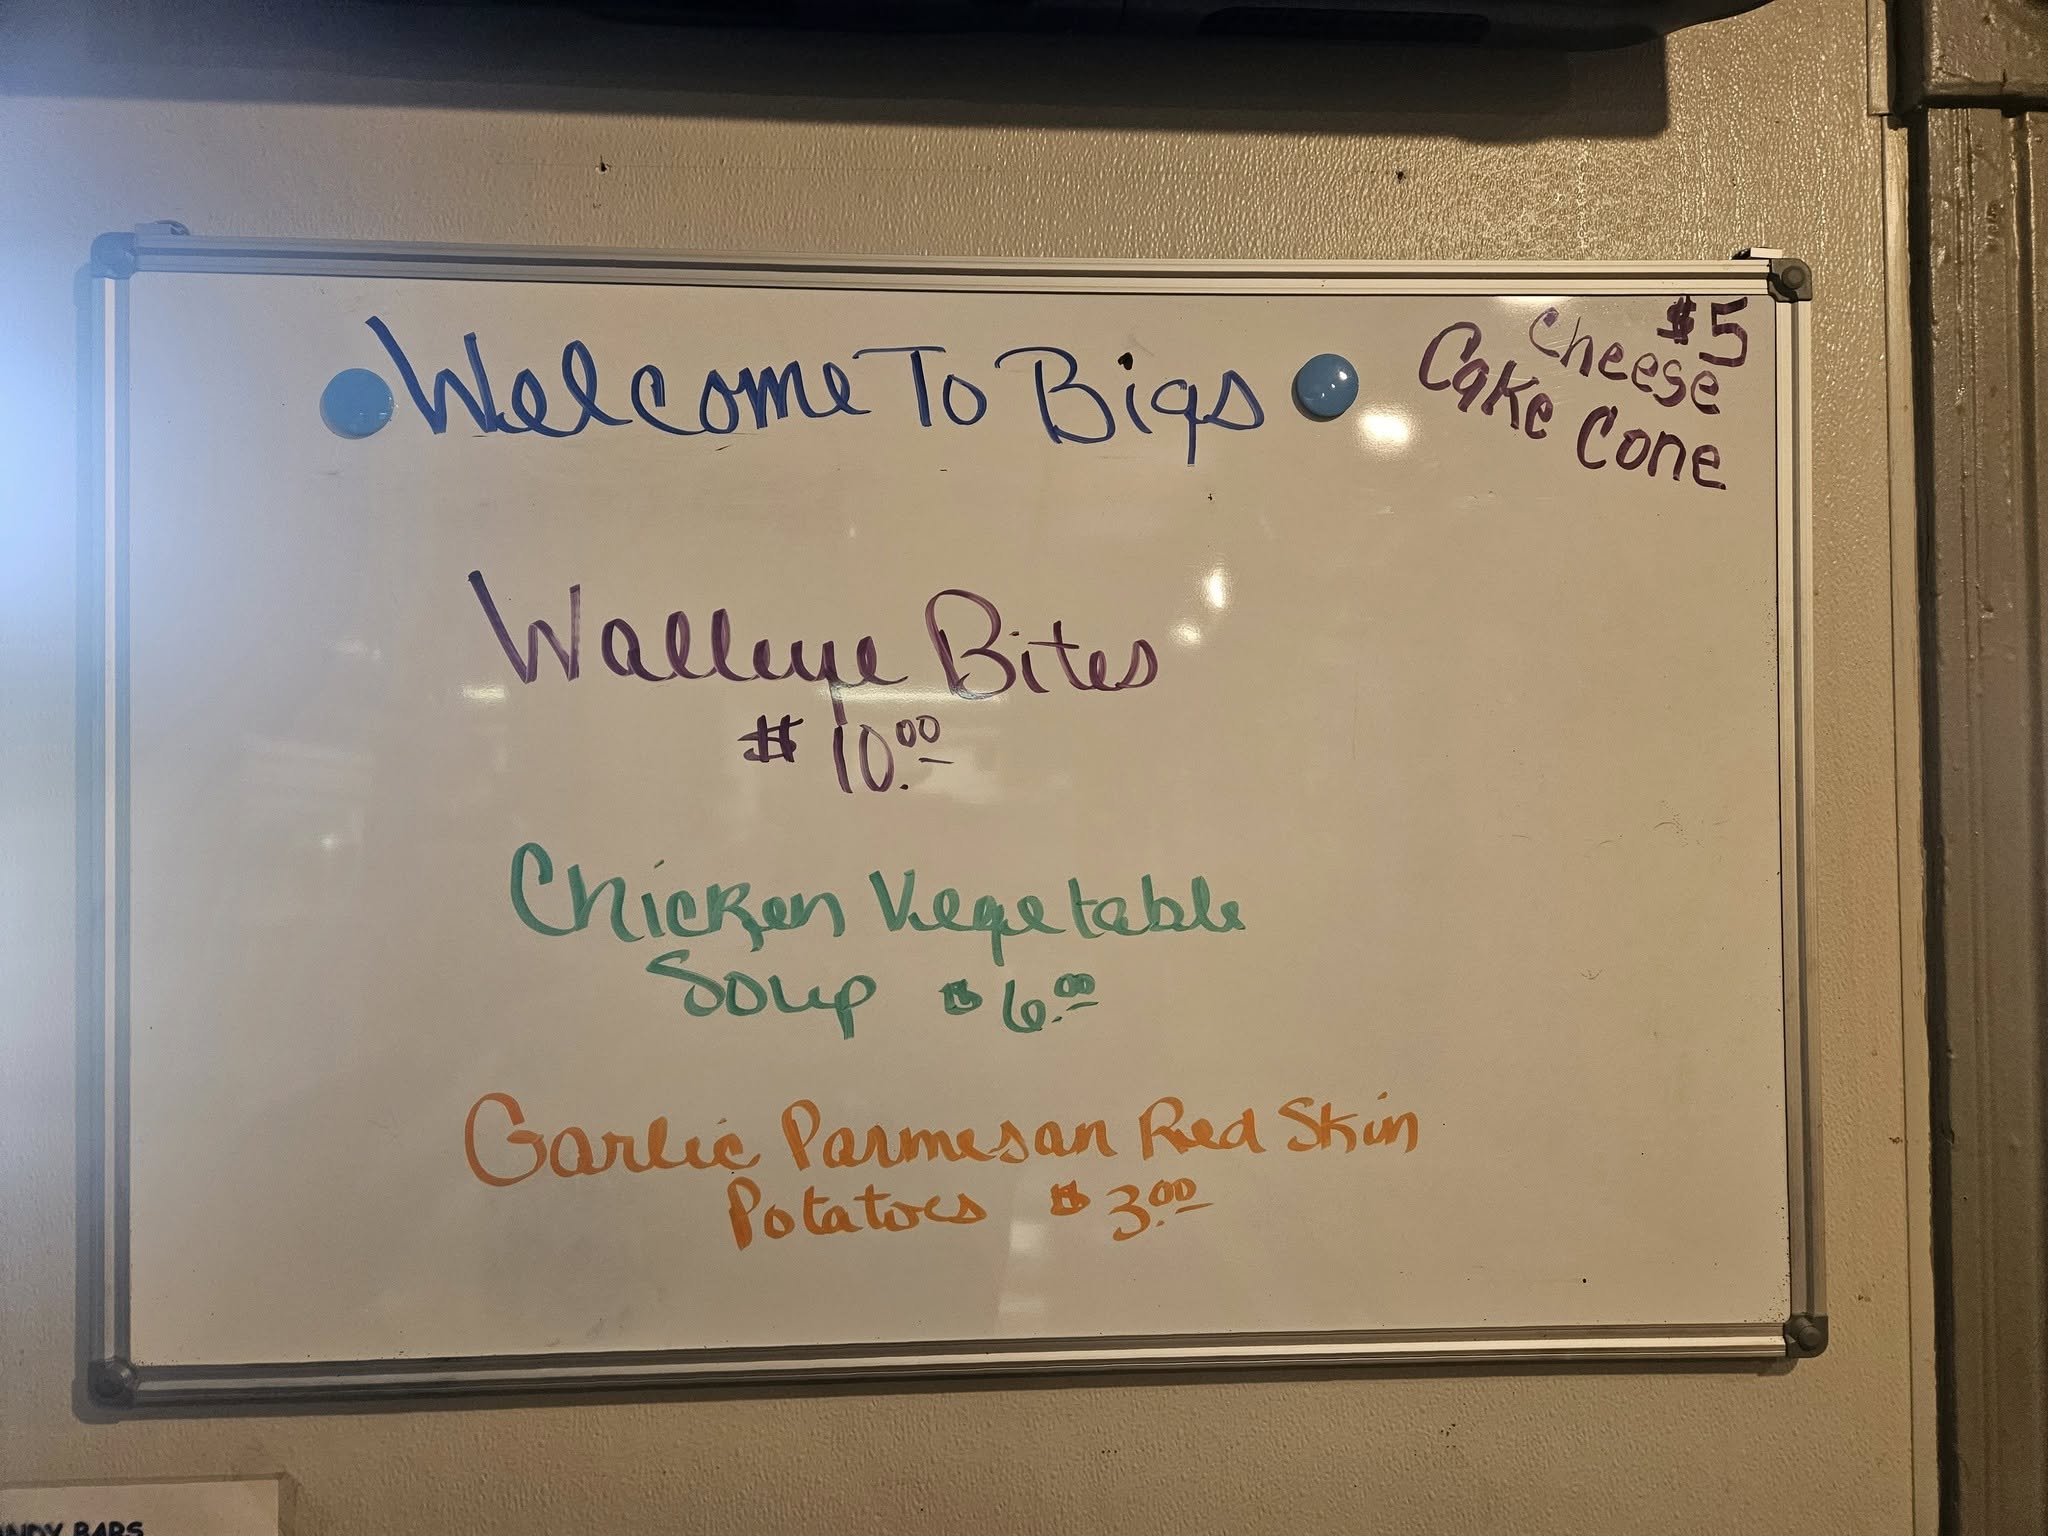 Welcome To Bigs
$5
Cheese
Cake Cone
Walleye Bites
$ 10.00
Chicken Vegetable
Soup $ 6.00
Garlic Parmesan Red Skin
Potatoes $ 3.00
BARS